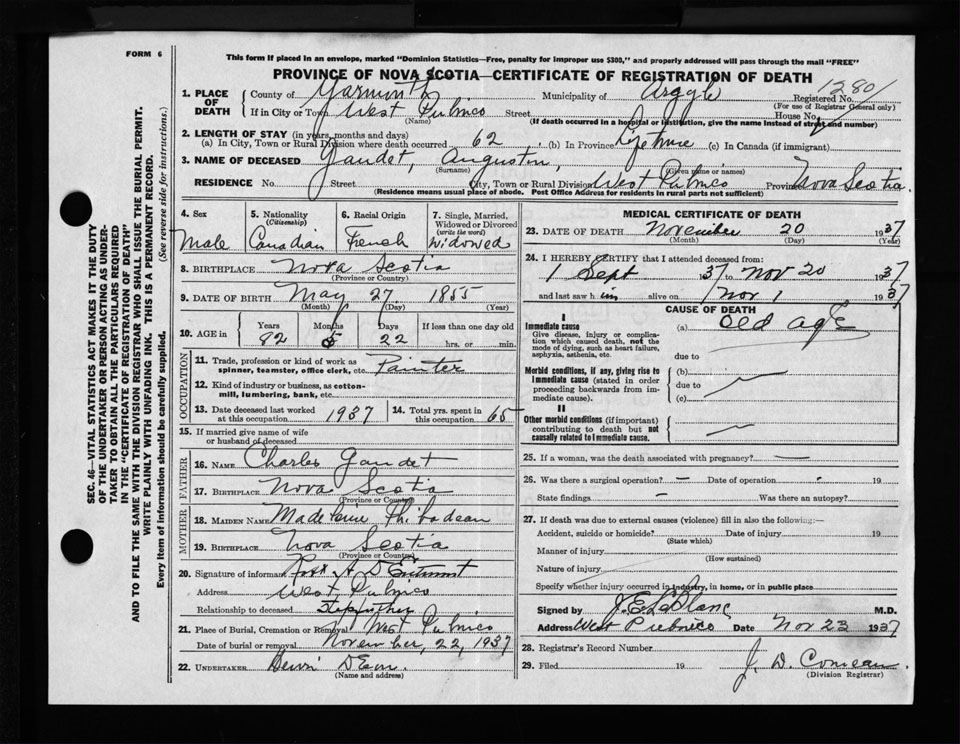 FORM 6
This form if placed in an envelope, marked "Dominion Statistics—Free, penalty for improper use $300," and properly addressed will pass through the mail "FREE"
PROVINCE OF NOVA SCOTIA—CERTIFICATE OF REGISTRATION OF DEATH
1280
1. PLACE OF DEATH County of Yarmouth Municipality of Argyle Registered No.
(For use of Registrar General only)
If in City or Town West Pubnico Street House No.
(Name) (If death occurred in a hospital or institution, give the name instead of street and number)
2. LENGTH OF STAY (in years, months and days)
(a) In City, Town or Rural Division where death occurred 62 (b) In Province Lifetime (c) In Canada (if immigrant)
3. NAME OF DECEASED Gaudet, Augustin,
(Surname) (Given name or names)
RESIDENCE No. Street City, Town or Rural Division West Pubnico Province Nova Scotia
(Residence means usual place of abode. Post Office Address for residents in rural parts not sufficient)
4. Sex 5. Nationality (Citizenship) 6. Racial Origin 7. Single, Married, Widowed or Divorced (write the word)
Male Canadian French Widowed
8. BIRTHPLACE Nova Scotia
(Province or Country)
9. DATE OF BIRTH May 27 1855
(Month) (Day) (Year)
10. AGE in Years Months Days If less than one day old
82 5 22 hrs. or min.
OCCUPATION
11. Trade, profession or kind of work as spinner, teamster, office clerk, etc. Painter
12. Kind of industry or business, as cotton-mill, lumbering, bank, etc.
13. Date deceased last worked at this occupation 1937 14. Total yrs. spent in this occupation 65
15. If married give name of wife or husband of deceased
FATHER
16. NAME Charles Gaudet
17. BIRTHPLACE Nova Scotia
(Province or Country)
MOTHER
18. MAIDEN NAME Madeleine Thibodeau
19. BIRTHPLACE Nova Scotia
(Province or Country)
20. Signature of informant A D'Entremont
Address West Pubnico
Relationship to deceased
21. Place of Burial, Cremation or Removal West Pubnico
Date of burial or removal November, 22, 1937
22. UNDERTAKER
(Name and address)
MEDICAL CERTIFICATE OF DEATH
23. DATE OF DEATH November 20 1937
(Month) (Day) (Year)
24. I HEREBY CERTIFY that I attended deceased from:
1 Sept 1937 to Nov 20 1937
and last saw him alive on Nov 1 1937
CAUSE OF DEATH
I
Immediate cause (a) Old Age
Give disease, injury or complication which caused death, not the mode of dying, such as heart failure, asphyxia, asthenia, etc.
due to
Morbid conditions, if any, giving rise to Immediate cause (stated in order proceeding backwards from immediate cause).
(b)
due to
(c)
II
Other morbid conditions (if important) contributing to death but not causally related to Immediate cause.
25. If a woman, was the death associated with pregnancy? —
26. Was there a surgical operation? – Date of operation 19
State findings Was there an autopsy?
27. If death was due to external causes (violence) fill in also the following:—
Accident, suicide or homicide? Date of injury 19
(State which)
Manner of injury
(How sustained)
Nature of injury
Specify whether injury occurred in industry, in home, or in public place
Signed by J. E. LeBlanc M.D.
Address West Pubnico Date Nov 23 1937
28. Registrar's Record Number
29. Filed 19 J. D. Comeau.
(Division Registrar)
SEC. 46—VITAL STATISTICS ACT MAKES IT THE DUTY
OF THE UNDERTAKER OR PERSON ACTING AS UNDER-
TAKER TO OBTAIN ALL THE PARTICULARS REQUIRED
IN THE "CERTIFICATE OF REGISTRATION OF DEATH"
AND TO FILE THE SAME WITH THE DIVISION REGISTRAR WHO SHALL ISSUE THE BURIAL PERMIT.
WRITE PLAINLY WITH UNFADING INK. THIS IS A PERMANENT RECORD.
Every item of information should be carefully supplied. (See reverse side for instructions.)